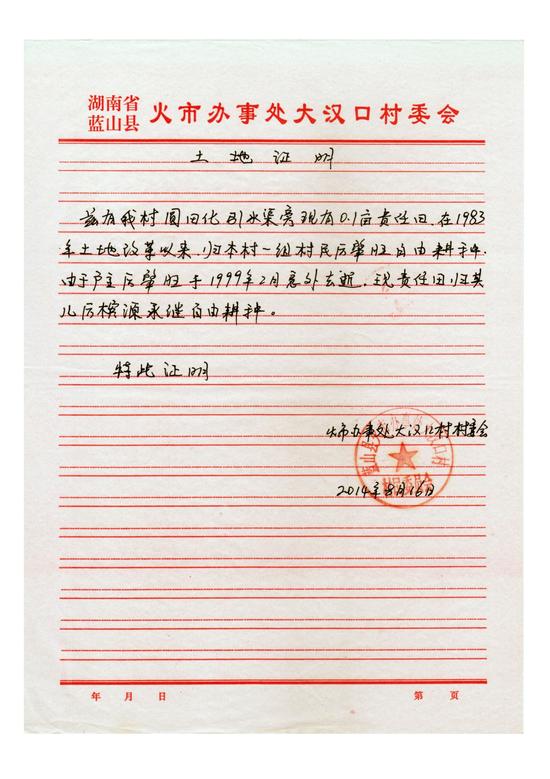 湖南省
蓝山县 火市办事处大汉口村委会
土地证明
兹有我村圆田化引水渠旁现有0.1亩责任田.在1983
年土地改革以来.归本村一组村民厉肇旺自由耕种.
由于户主厉肇旺于1999年2月意外去逝.现责任田归其
儿厉槟源承继自由耕种。
特此证明
火市办事处大汉口村村委会
2014年8月16日
年 月 日 第 页